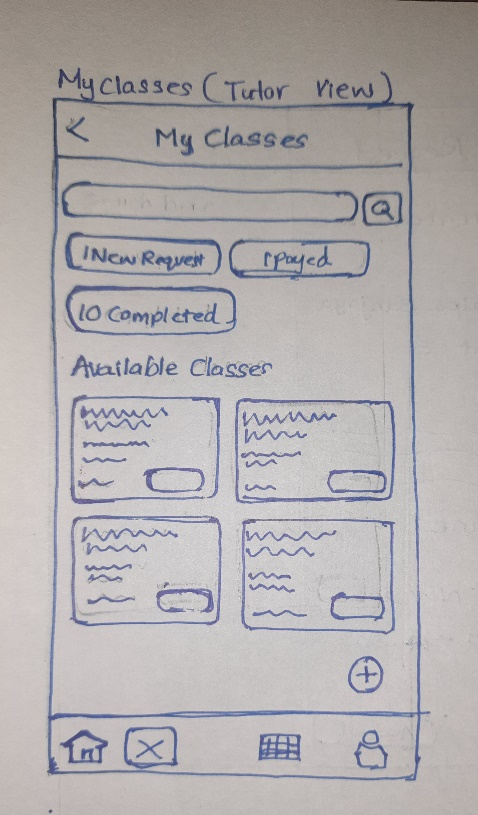 My Classes (Tutor view)
My Classes
1 New Request
1 payed
10 Completed
Available Classes